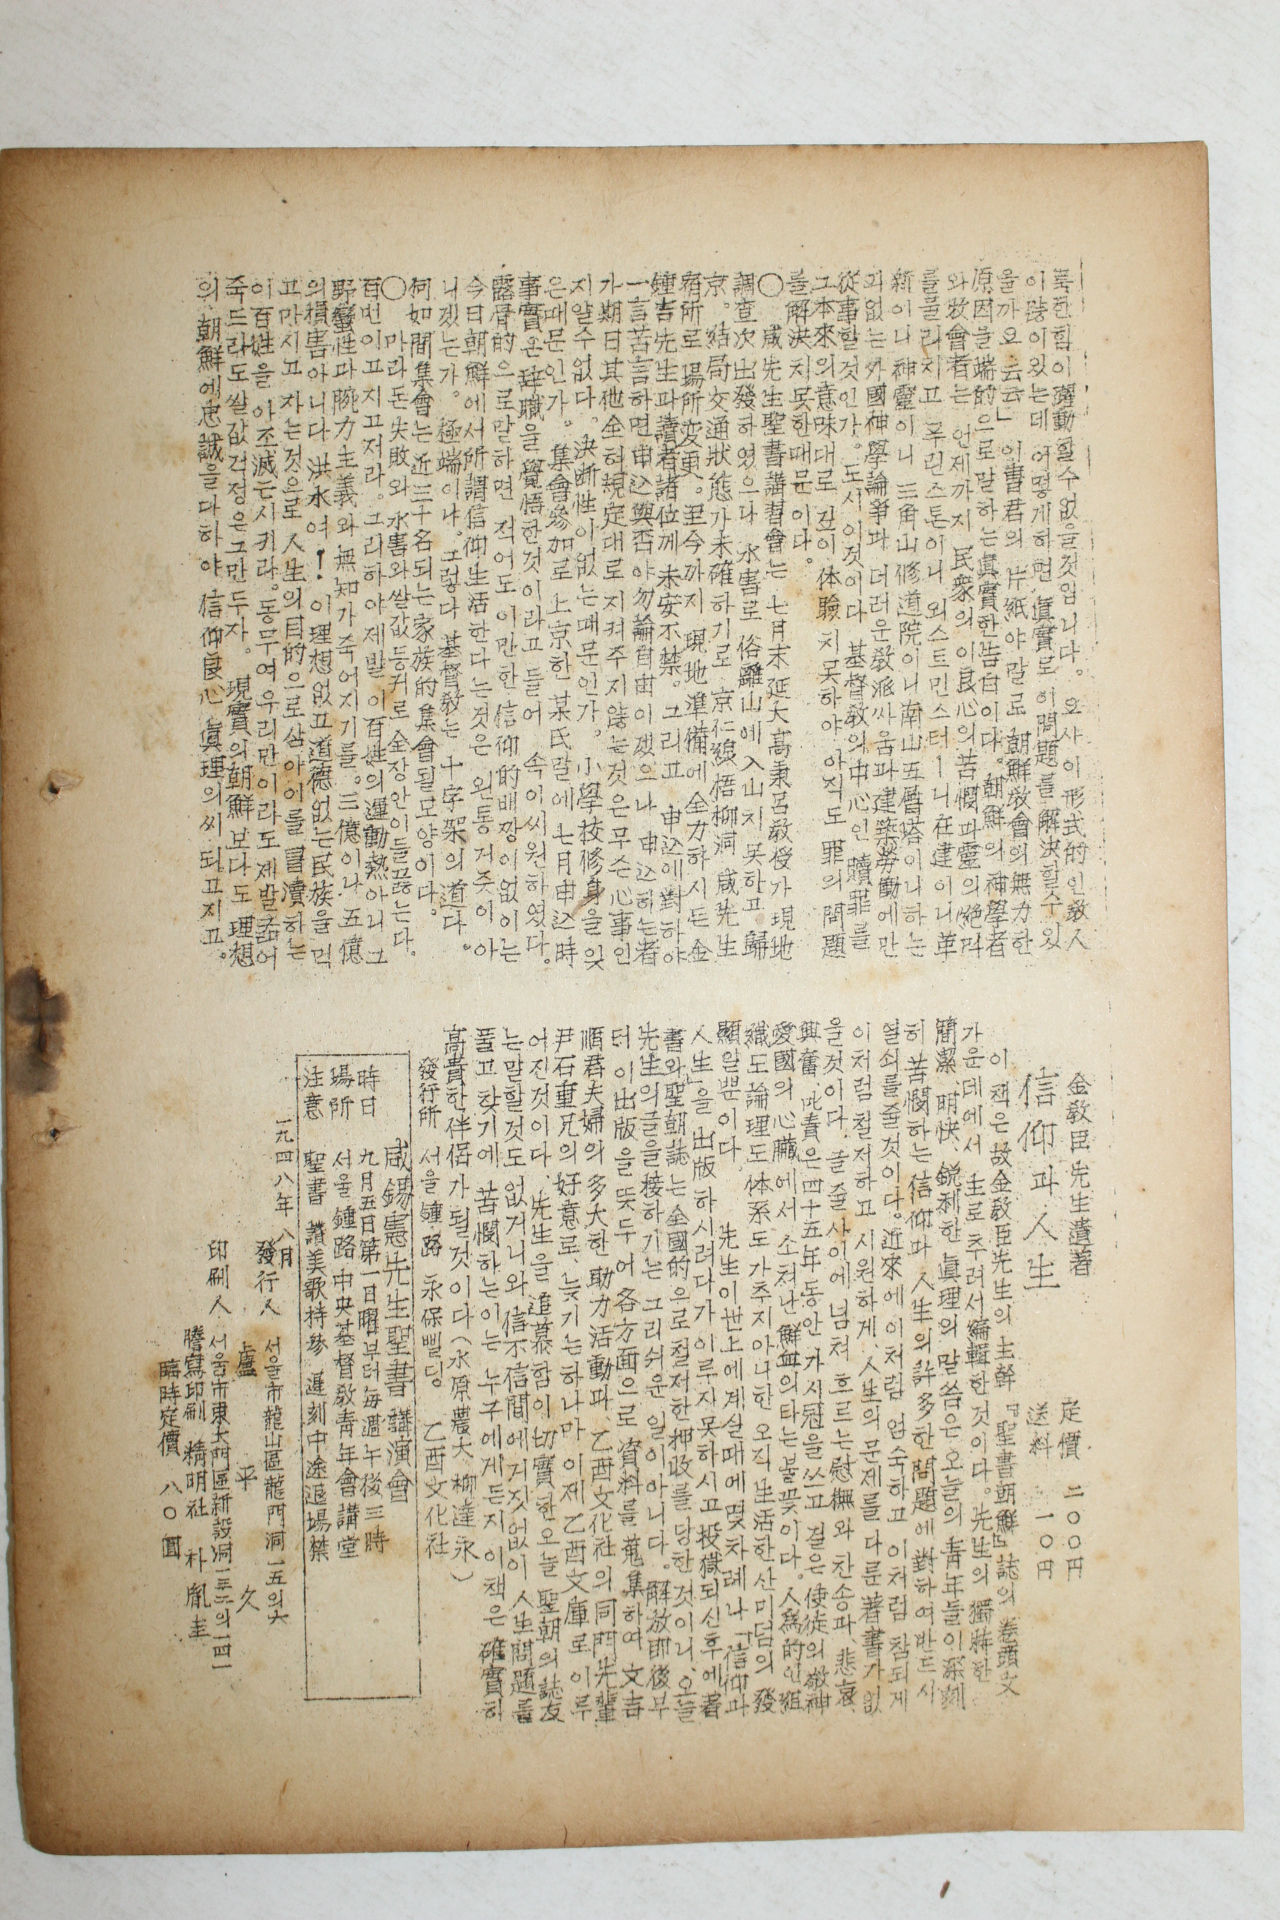 이많이있는데 어떻게하면 眞實로 이問題를 解決할수있
을까요 云云」 이書君의 片紙야말로 朝鮮敎會의無力한
原因을端的으로말하는眞實한告白이다。朝鮮의神學者
와牧會者는 언제까지 民衆의이良心의苦悶과靈의絶叫
를물리치고 푸린스톤이니 외스트민스터ー니在建이니革
新이니神靈이니 三角山修道院이니南山五層塔이니하는
과없는外國神學論爭과 더러운敎派싸움과建築勞働에만
從事할것인가。도시이것이다 基督敎의中心인 贖罪를
그本來의意味대로 깊이体驗치못하야 아직도 罪의問題
를解決치못한때문이다。
〇 咸先生聖書講習會는 七月末延大高秉呂敎授가現地
調査次出發하였으나 水害로俗離山에入山치못하고 歸
京。結局交通狀態가未確하기로 京仁線梧柳洞 咸先生
宿所로場所変更。至今까지 現地準備에全力하시든金
鍾吉先生과讀者諸位께 未安不禁。그리고 申込에對하야
一言苦言하면申込與否야勿論自由이겠으나 申込하는者
가期日其他全혀規定대로지켜주지않는것은무슨心事인
지알수없다。決断性이없는때문인가。小學校修身을잊
은때문인가。集會參加로上京한某氏말에七月申込時
事實은辞職을覺悟한것이라고들어 속이씨원하였다。
露骨的으로말하면 적어도이만한信仰的배짱이없이는
今日朝鮮에서所謂信仰生活한다는것은 왼통거즛이아
니겠는가。極端이나。그렇다 基督敎는十字架의道다。
何如間集會는近三十名되는家族的集會될모양이다。
〇 마라돈失敗와水害와쌀값등귀로全장안이들끓는다。
百번이고지고저라。그리하야제발이百姓의運動熱아니그
野蠻性과腕力主義와無知가죽어지기를。三億이나五億
의損害아니다 洪水여！ 이理想없고道德없는民族을먹
고마시고 자는것으로人生의目的으로삼아이를冒瀆하는
이百姓을 아조滅亡시키라。동무여우리만이라도제발굶어
죽드라도쌀값걱정은그만두자。 現實의朝鮮보다도理想
의朝鮮에忠誠을다하야 信仰良心眞理의씨되고지고。
金敎臣先生遺著
信仰과人生
定價 二〇〇円
送料 一〇円
이책은故金敎臣先生의主幹『聖書朝鮮』誌의 卷頭文
가운데에서 主로추려서編輯한것이다。先生의獨特한
簡潔、明快、銳利한眞理의말씀은오늘의靑年들이深刻
히苦悶하는信仰과人生의許多한問題에對하여반드시
열쇠를줄것이다。近來에이처럼엄숙하고이처럼참되게
이처럼철저하고시원하게、人生의문제를다룬著書가없
을것이다。줄줄사이에넘쳐흐르는慰撫와찬송과、悲哀、
興奮、叱責은四十五年동안가시冠을쓰고걸은使徒의敬神
愛國의心臟에서소쳐난鮮血의타는불꽃이다。人爲的인組
織도論理도体系도가추지아니한오직生活한산미덤의發
顯일뿐이다。 先生이世上에계실때에몇차례나「信仰과
人生」을出版하시려다가이루지못하시고投獄되신후에著
書와聖朝誌는全國的으로철저한押收를당한것이니오늘
先生의글을接하기는그리쉬운일이아니다。解放即後부
터 이出版을뜻두어各方面으로資料를蒐集하여 文吉
順君夫婦의多大한助力活動과乙酉文化社의同門先輩
尹石重兄의好意로、늦기는하나마이제乙酉文庫로이루
어진것이다。先生을追慕함이切實한오늘聖朝의誌友
는말할것도없거니와信不信間에거짓없이人生問題를
풀고찾기에苦悶하는이는누구에게든지이책은確實히
高貴한伴侶가될것이다(水原農大、柳達永)
發行所 서울鍾路 永保삘딩 乙酉文化社
咸錫憲先生聖書講演會
時日 九月五日第一日曜부터每週午後三時
場所 서울鍾路中央基督敎靑年會講堂
注意 聖書 讚美歌持參 遲刻中途退場禁
一九四八年八月
發行人 서울市龍山區龍門洞一五의六
盧 平 久
印刷人 서울市東大門區新設洞一三二의一四一
謄寫印刷 精明社 朴胤圭
臨時定價 八〇圓